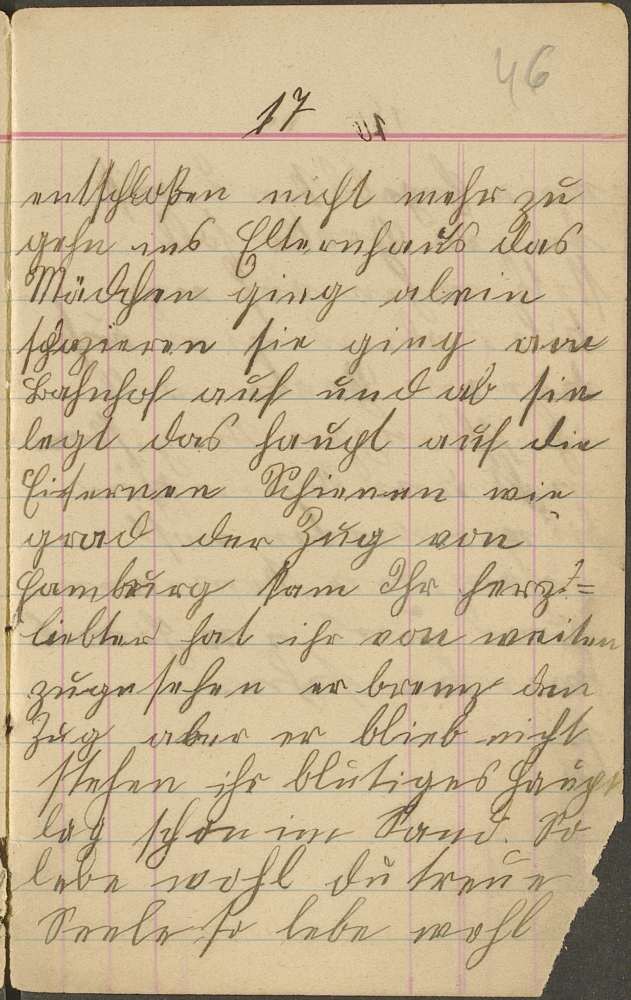 46
17
10
entschloßen nicht mehr zu
gehn ins Elternhaus das
Mädchen ging alein
spazieren sie ging am
Bahnhof auf und ab sie
legt das haupt auf die
Eisernen Schienen wie
grad der Zug von
Hamburg kam Ihr herz=
liebter hat ihr von weiten
zugesehen er bremz den
Zug aber er blieb nicht
stehen ihr blutiges Haupt
lag schon im Sand. So
lebe wohl du treue
Seele So lebe wohl